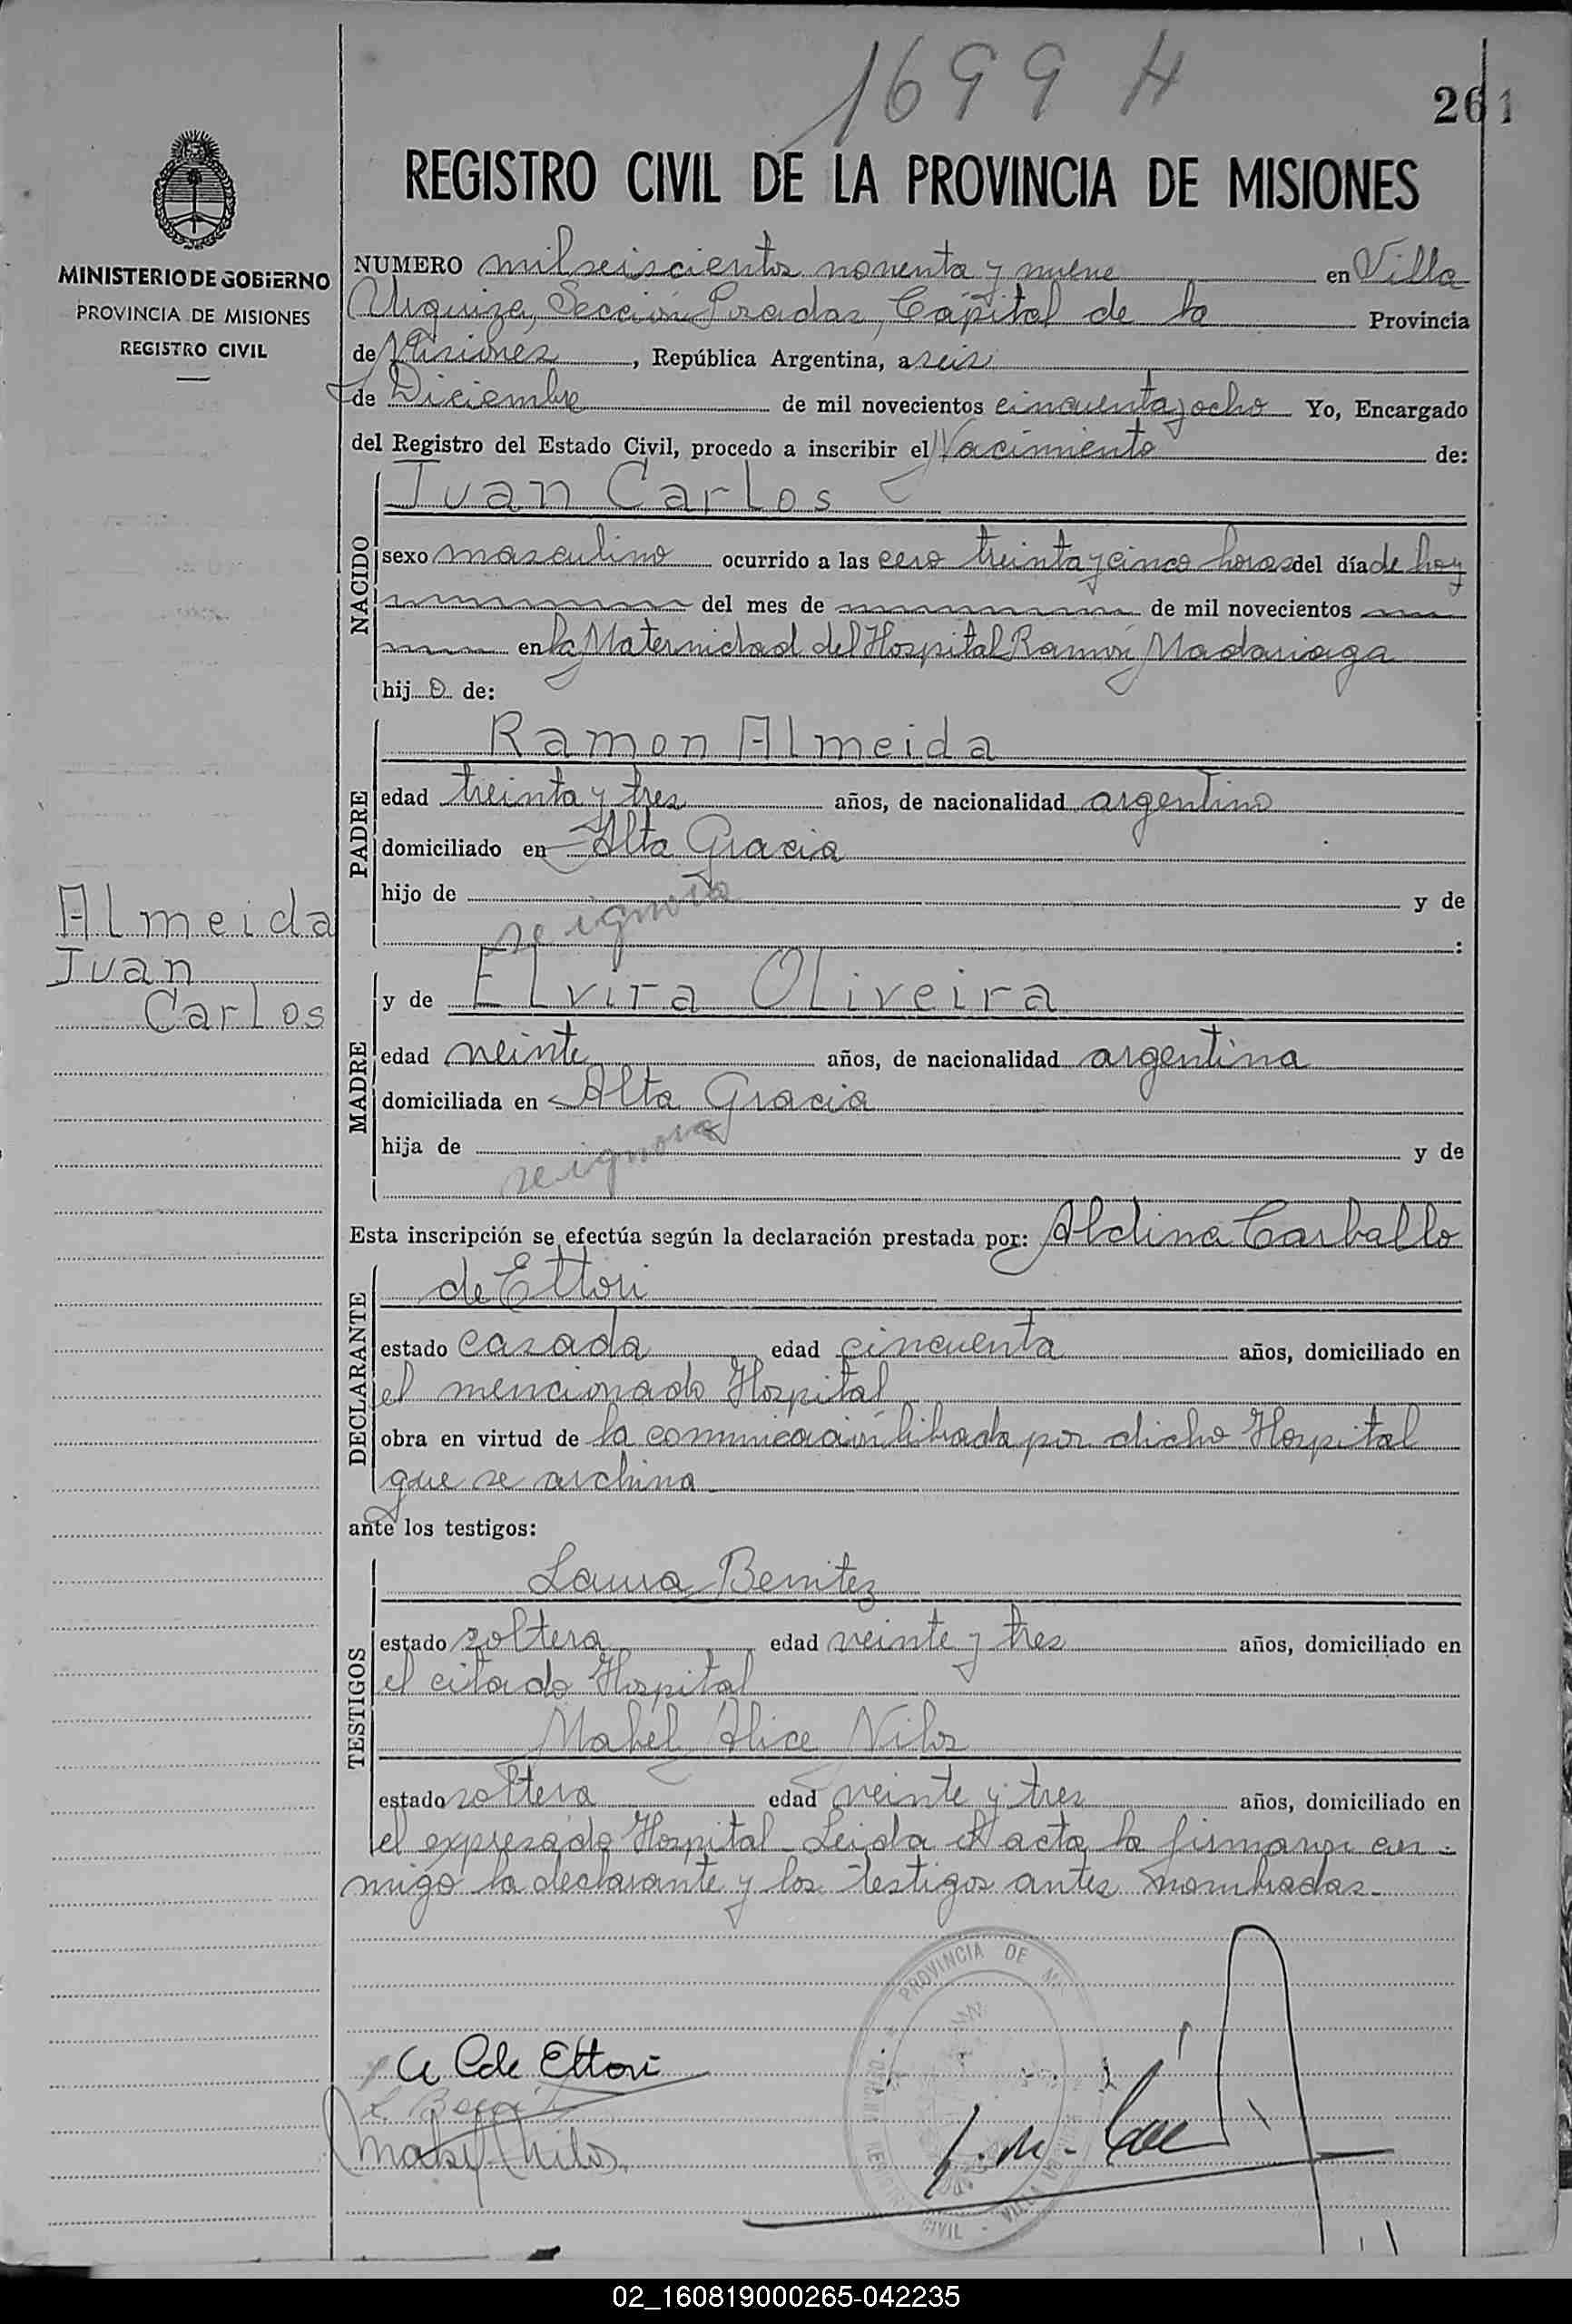 1699 H
261
REGISTRO CIVIL DE LA PROVINCIA DE MISIONES
MINISTERIO DE GOBIERNO
PROVINCIA DE MISIONES
REGISTRO CIVIL
NUMERO mil seiscientos noventa y nueve en Villa
Urquiza, Sección Posadas, Capital de la Provincia
de Misiones, República Argentina, a seis
de Diciembre de mil novecientos cincuenta y ocho Yo, Encargado
del Registro del Estado Civil, procedo a inscribir el Nacimiento de:
NACIDO
Juan Carlos
sexo masculino ocurrido a las cero treinta y cinco horas del día de hoy
del mes de de mil novecientos
en la Maternidad del Hospital Ramón Madariaga
hijo de:
PADRE
Ramon Almeida
edad treinta y tres años, de nacionalidad argentino
domiciliado en Alta Gracia
hijo de se ignora y de
:
Almeida
Juan
Carlos
MADRE
y de Elvira Oliveira
edad veinte años, de nacionalidad argentina
domiciliada en Alta Gracia
hija de se ignora y de
Esta inscripción se efectúa según la declaración prestada por: Aldina Carballo
DECLARANTE
de Ettori
estado casada edad cincuenta años, domiciliado en
el mencionado Hospital
obra en virtud de la comunicación librada por dicho Hospital
que se archiva
ante los testigos:
TESTIGOS
Laura Benitez
estado soltera edad veinte y tres años, domiciliado en
el citado Hospital
Mabel Alice Nilos
estado soltera edad veinte y tres años, domiciliado en
el expresado Hospital - Leida el acta la firmaron con-
migo la declarante y los testigos antes nombradas.
PROVINCIA DE
CIVIL - VILLA
A C de Ettori
Mabel Nilos
02_160819000265-042235